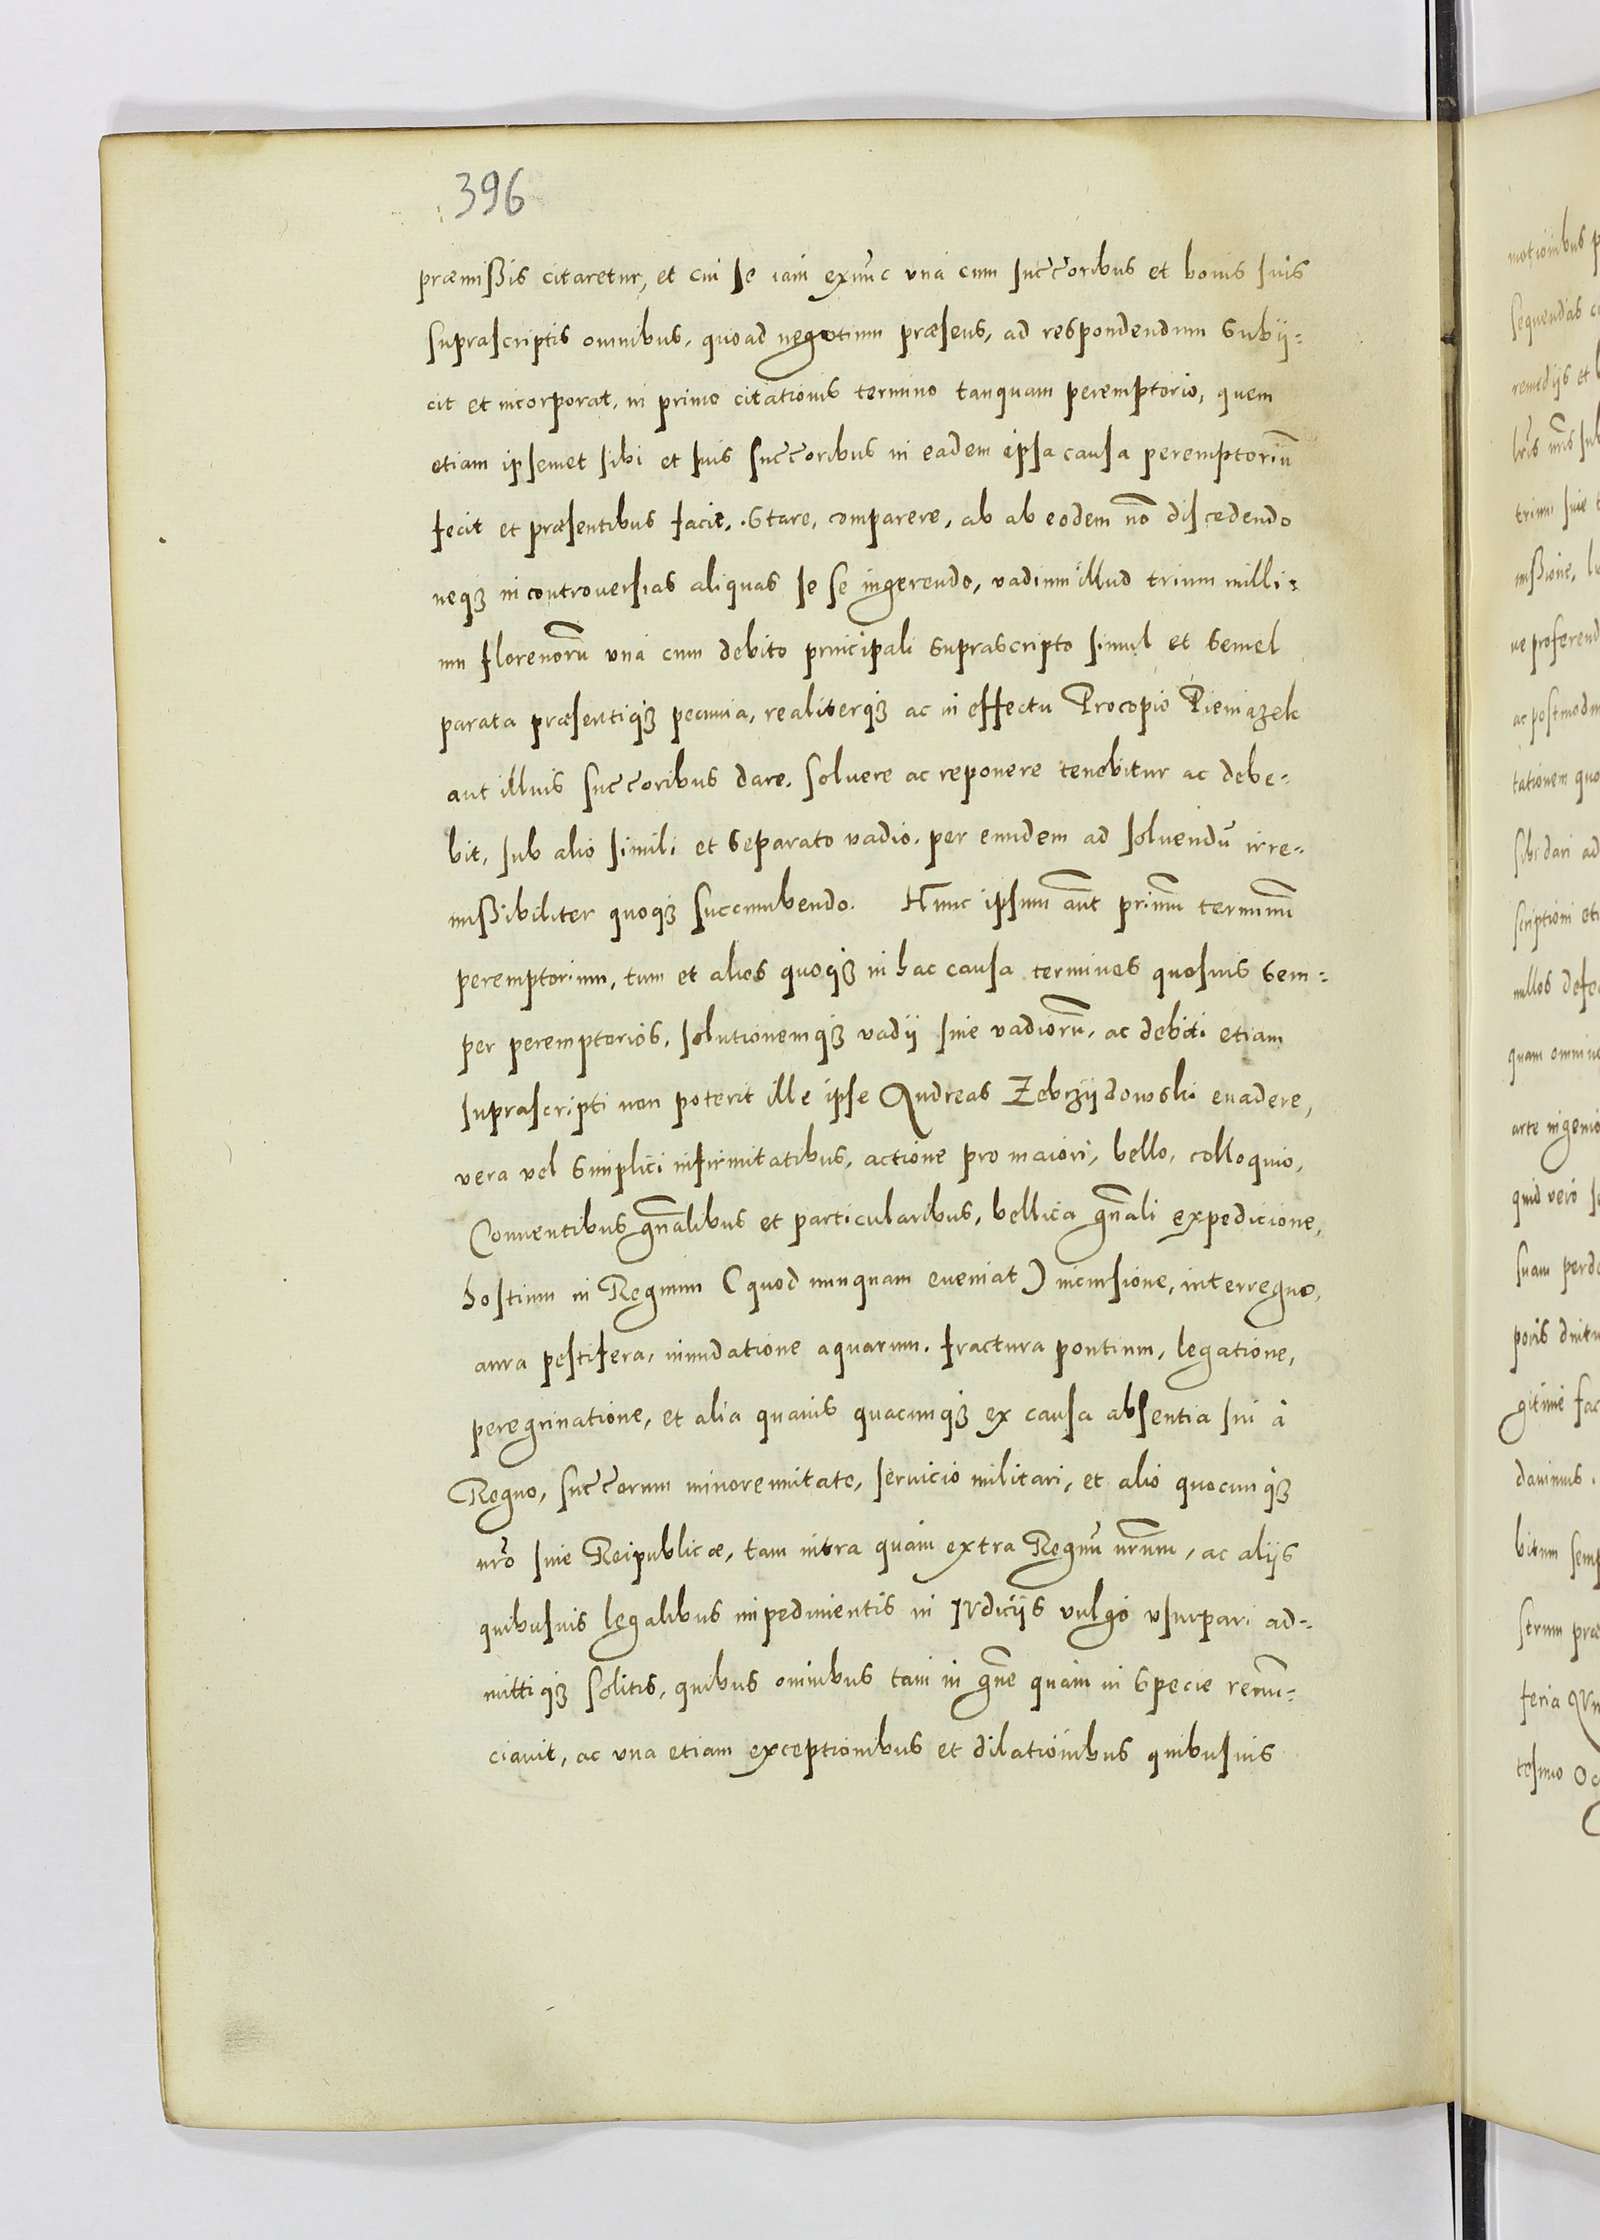 396
præmißis citaretur, et cui se iam exnu̅c vna cum succ̅oribus et bonis suis
suprascriptis omnibus, quoad negotium præsens, ad respondendum subij=
cit et incorporat, in primo citationis termino tanquam peremptorio, quem
etiam ipsemet sibi et suis succ̅oribus in eadem ipsa causa peremptoriu̅
fecit et præsentibus facit, stare, comparere, ab ab eodem no̅ discedendo
neqꝫ in controuersias aliquas se se ingerendo, vadium illud trium milli=
um florenoru̅ vna cum debito principali suprascripto simul et semel
parata præsentiqꝫ pecunia, realiterqꝫ ac in effectu Procopio Pieniazek
aut illius succ̅oribus dare, soluere ac reponere tenebitur ac debe=
bit, sub alio simili et separato vadio, per eundem ad soluendu̅ irre=
mißibiliter quoqꝫ succumbendo. Hunc ipsum au̅t primu̅ terminu̅
peremptorium, tum et alios quoqꝫ in hac causa terminos quosuis sem=
per peremptorios, solutionemqꝫ vadij siue vadioru̅, ac debiti etiam
suprascripti non poterit ille ipse Andreas Zebrzijdowski euadere,
vera vel simplici infirmitatibus, actione pro maiori, bello, colloquio,
Conuentibus gn̅alibus et particularibus, bellica gn̅ali expedicione,
hostium in Regnum (quod nunquam eueniat) incursione, interregno,
aura pestifera, inundatione aquarum, fractura pontium, legatione,
peregrinatione, et alia quauis quacunqꝫ ex causa absentia sui à
Regno, succ̅orum minorennitate, seruicio militari, et alio quocunqꝫ
nr̅o siue Reipublicæ, tam intra quam extra Regnu̅ nr̅um, ac alijs
quibusuis legalibus impedimentis in Judicijs vulgo vsurpari ad=
mittiqꝫ solitis, quibus omnibus tam in gn̅e quam in specie renu̅=
ciauit, ac vna etiam exceptionibus et dilationibus quibusuis